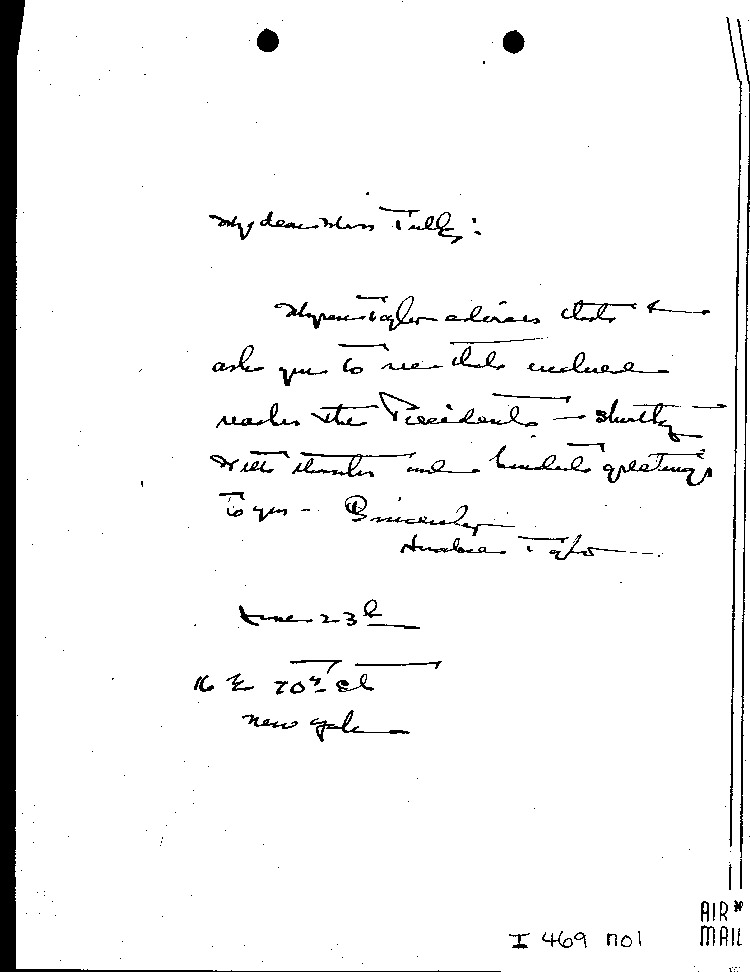 My dear Miss Tully:
Myron Taylor advises that I
ask you to see that enclosed
reaches the President shortly
With thanks and kindest greetings
to you - Sincerely
Taylor
June 23d
16 E 70th St
New York
AIR*
MAIL
I 469 no1